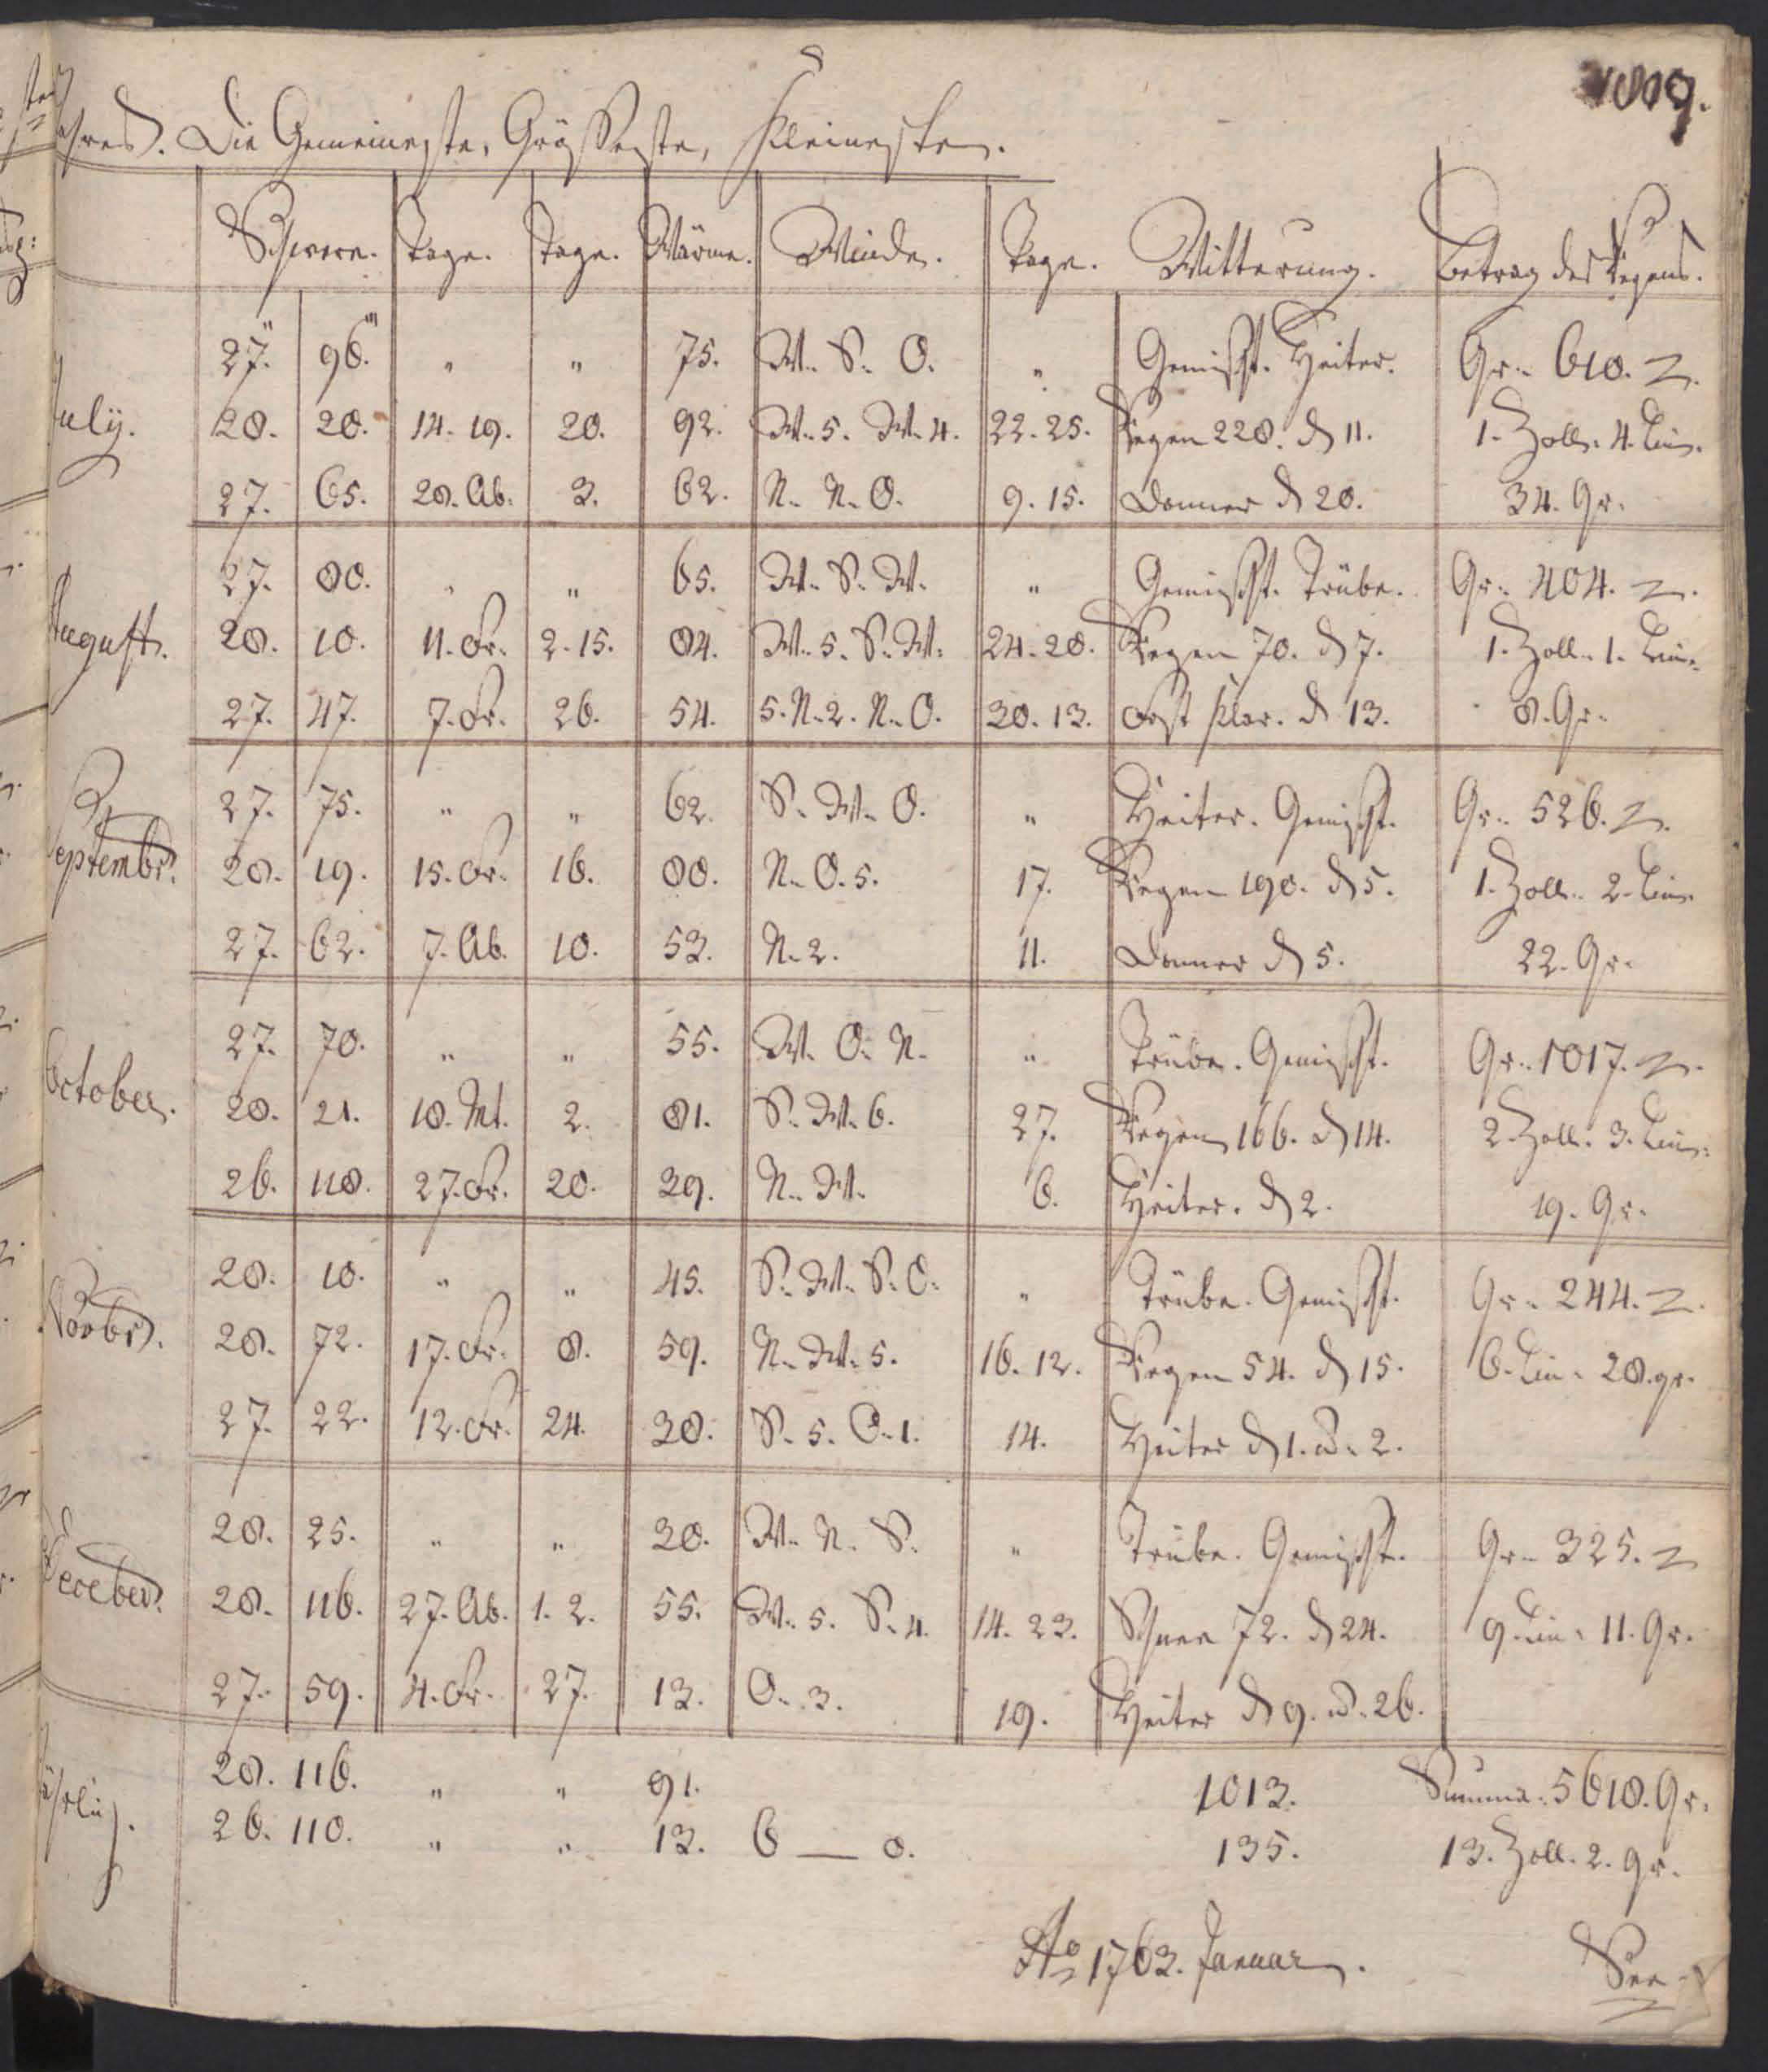 1809.
Die Gemeineste, Grösseste, Kleinesten.
Schwere. Tage. Tage. Wärme. Winde. Tage. Witterung. Betrag des Regens.
27." 96."' " " 75. W. S. O. " Gemischt. Heiter. Gr. 610. 
July. 28. 20. 14. 19. 20. 92. W. 5. W. 4. 22. 25. Regen 228. d 11. 1. Zoll. 4. Lin.
27. 65. 28. Ab. 3. 62. N. N. O. 9. 15. Donner d 20. 34. Gr.
27. 80. " " 65. W. S. W. " Gemischt. Trübe. Gr. 404.
August. 28. 10. 11. Fr. 2. 15. 84. W. 5. S. W. 24. 28. Regen 70. d 7. 1. Zoll. 1. Lin.
27. 47. 7. Fr. 26. 54. 5. N. 2. N. O. 30. 13. klar. d 13. 8. Gr.
27. 75. " " 62. S. W. O. " Heiter. Gemischt. Gr. 526.
Septembr. 28. 19. 15. Fr. 16. 80. N. O. 5. 17. Regen 190. d 5. 1. Zoll. 2. Lin.
27. 62. 7. Ab. 10. 53. N. 2. 11. Donner d 5. 22. Gr.
27. 70. " " 55. W. O. N. " Trübe. Gemischt. Gr. 1017.
October. 28. 21. 18. Mt. 2. 81. S. W. 6. 27. Regen 166. d 14. 2. Zoll. 3. Lin.
26. 118. 27. Fr. 20. 39. N. W. 6. Heiter. d 2. 19. Gr.
28. 10. " " 45. S. W. S. O. " Trübe. Gemischt. Gr. 244.
Novbr. 28. 72. 17. Fr. 8. 59. N. W. 5. 16. 12. Regen 54. d 15. 6. Lin. 28. gr.
27. 22. 12. Fr. 24. 30. S. 5. O. 1. 14. Heiter d 1. u. 2.
28. 25. " " 30. W. N. S. " Trübe. Gemischt. Gr. 325.
Deceber. 28. 116. 27. Ab. 1. 2. 55. W. 5. S. 4. 14. 23. Schnee 72. d 24. 9. Lin. 11. Gr.
27. 59. 4. Fr. 27. 13. O. 3. 19. Heiter d 9. u. 26.
28. 116. " " 91. 1013. Summa. 5618. Gr.
26. 118. " " 13. 6 — 0. 135. 13. Zoll. 2. gr.
Ao 1763. Januar.